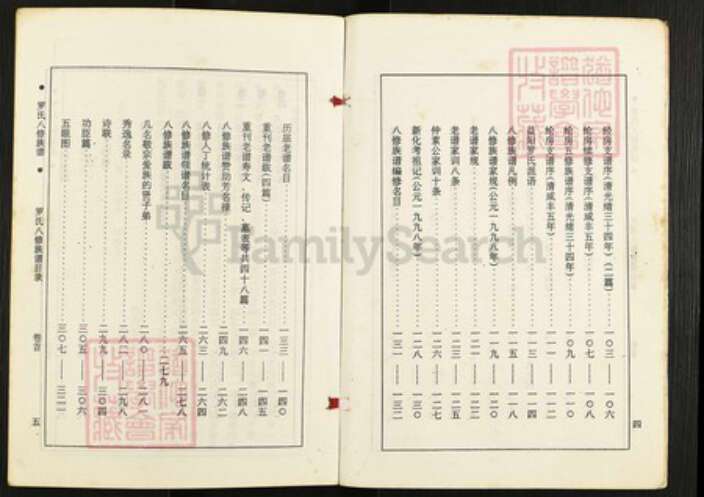 经房支谱序(清光绪三十四年)(二篇)……一〇三——一〇六
纶房续修支谱序(清咸丰五年)……一〇七——一〇八
纶房五修族谱序(清光绪三十四年)……一〇九——一一〇
纶房支谱序(清咸丰五年)……一一一——一一二
益阳罗氏派语……一一三——一一四
八修族谱凡例……一一五——一一八
八修族谱家规(公元一九九八年)……一一九——一二〇
老谱家规……一二一——一二二
老谱家训八条……一二三——一二五
仲素公家训十条……一二六——一二七
新化考祖记(公元一九九八年)……一二八——一三〇
八修族谱编修名目……一三一——一三二
四
历届老谱名目……一三三——一四〇
重刊老谱跋(四篇)……一四一——一四五
重刊老谱寿文、传记、墓表等共四十八篇……一四六——二四八
八修族谱赞助芳名榜……二四九——二六二
八修人丁统计表……二六三——二六四
八修族谱领谱名目……二六五——二七八
八修族谱跋……二七九
凡名敬宗爱族的贤子弟……二八〇——二八一
秀逸名录……二八二——二九八
诗联……二九九——三〇四
功臣篇……三〇五——三〇六
五眼图……三〇七——三二二
罗氏八修族谱
罗氏八修族谱目录
卷首
五
FamilySearch